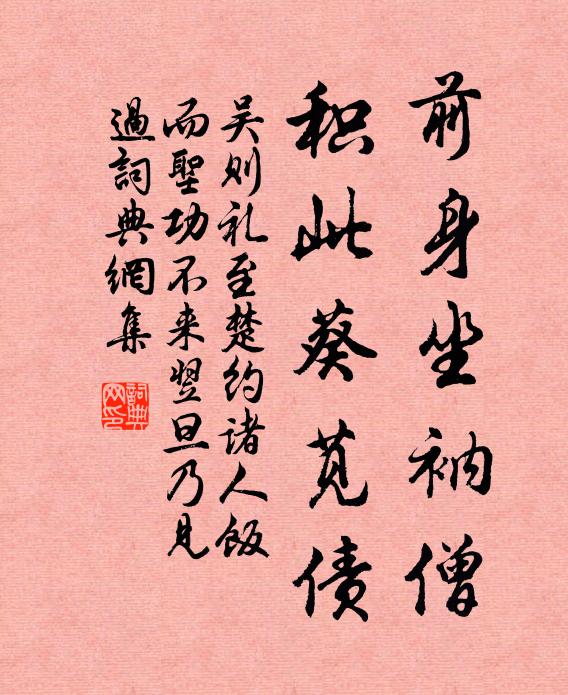 前身坐衲僧
积此葵苋债
吴则礼至楚约诸人饭
而聖功不来翌旦乃见
過詞典網集
詞典
网印